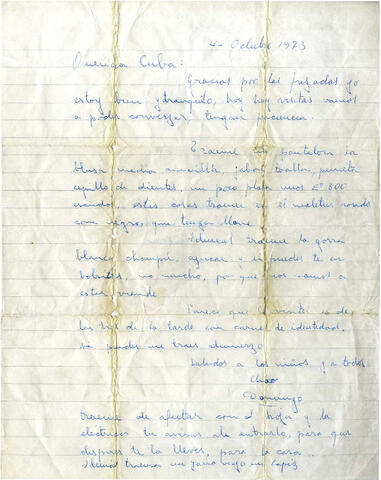 4 - Octubre 1973
Querida Cuba:
Gracias por las frazadas, yo
estoy bien y tranquilo, hoy hay visitas vamos
a poder conversar, tengan paciencia.
Traeme un pantalon, la
blusa media, jabon, toalla, peineta
cepillo de dientes, un poco plata unos Eº 800
estas cosas traeme en el maletin
con negro, que tenga llave.
traeme la gorra
blanca, champú, azucar y si puedes te en
bolsitas, no mucho, por que nos vamos a
estar viendo
Parece que la visita es de
las tres de la tarde con carnet de identidad,
si puedes me traes almuerzo
Saludos a los niños y a todos
Chao
Domingo
traeme de afeitar con el hoja y la
electrica tu avisas al entrarlo, para que
despues te la lleves para la casa.
Ademas traeme un lapiz